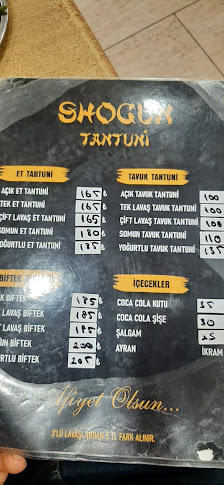 SHOGUN
TANTUNİ
ET TANTUNİ
AÇIK ET TANTUNİ 165₺
TEK ET TANTUNİ 165₺
ÇİFT LAVAŞ ET TANTUNİ 165₺
SOMUN ET TANTUNİ 180₺
YOĞURTLU ET TANTUNİ 185₺
TAVUK TANTUNİ
AÇIK TAVUK TANTUNİ 100
TEK LAVAŞ TAVUK TANTUNİ 100
ÇİFT LAVAŞ TAVUK TANTUNİ 100
SOMUN TAVUK TANTUNİ 110
YOĞURTLU TAVUK TANTUNİ 135
BİFTEK
BİFTEK 185₺
LAVAŞ BİFTEK 185₺
LAVAŞ BİFTEK 185₺
BİFTEK 200₺
BİFTEK 205₺
İÇECEKLER
COCA COLA KUTU 35
COCA COLA ŞİŞE 30
ŞALGAM 25
AYRAN İKRAM
Afiyet Olsun...
3'LÜ LAVAŞLARDAN 5 TL FARK ALINIR.